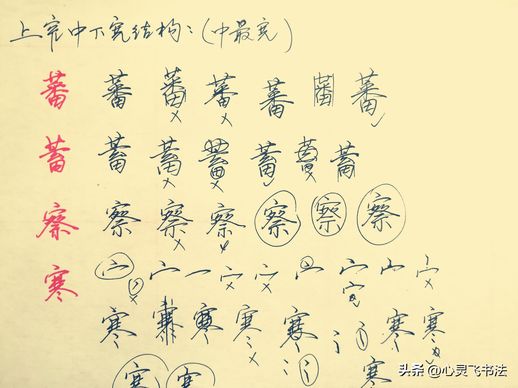 上窄中下宽结构：（中最宽）
蕃 蕃 蕃 蕃 蕃 蕃 蕃
蓄 蓄 蓄 蓄 蓄 蓄 蓄
察 察 察 察 察 察 察
寒 宀 宀 一 宀 宀 宀 宀 宀 宀
寒 寒 寒 寒 寒 寒 寒
寒 寒 寒
头条 @心灵飞书法